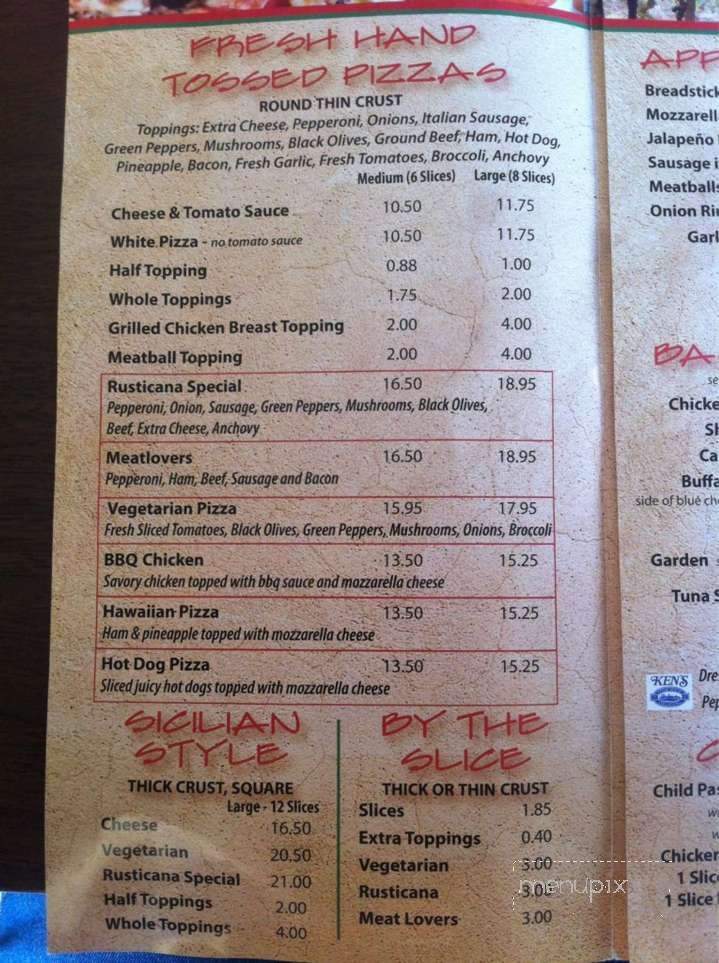 FRESH HAND
TOSSED PIZZAS
ROUND THIN CRUST
Toppings: Extra Cheese, Pepperoni, Onions, Italian Sausage,
Green Peppers, Mushrooms, Black Olives, Ground Beef, Ham, Hot Dog,
Pineapple, Bacon, Fresh Garlic, Fresh Tomatoes, Broccoli, Anchovy
Medium (6 Slices) Large (8 Slices)
Cheese & Tomato Sauce 10.50 11.75
White Pizza - no tomato sauce 10.50 11.75
Half Topping 0.88 1.00
Whole Toppings 1.75 2.00
Grilled Chicken Breast Topping 2.00 4.00
Meatball Topping 2.00 4.00
Rusticana Special 16.50 18.95
Pepperoni, Onion, Sausage, Green Peppers, Mushrooms, Black Olives,
Beef, Extra Cheese, Anchovy
Meatlovers 16.50 18.95
Pepperoni, Ham, Beef, Sausage and Bacon
Vegetarian Pizza 15.95 17.95
Fresh Sliced Tomatoes, Black Olives, Green Peppers, Mushrooms, Onions, Broccoli
BBQ Chicken 13.50 15.25
Savory chicken topped with bbq sauce and mozzarella cheese
Hawaiian Pizza 13.50 15.25
Ham & pineapple topped with mozzarella cheese
Hot Dog Pizza 13.50 15.25
Sliced juicy hot dogs topped with mozzarella cheese
SICILIAN
STYLE
THICK CRUST, SQUARE
Large - 12 Slices
Cheese 16.50
Vegetarian 20.50
Rusticana Special 21.00
Half Toppings 2.00
Whole Toppings 4.00
BY THE
SLICE
THICK OR THIN CRUST
Slices 1.85
Extra Toppings 0.40
Vegetarian 3.00
Rusticana 3.00
Meat Lovers 3.00
menupix
APP
Breadstick
Mozzarell
Jalapeño
Sausage i
Meatballs
Onion Rin
Garl
BA
se
Chicke
Sh
Ca
Buffa
side of blue ch
Garden
Tuna S
KEN'S
Dre
Pep
C
Child Pas
w
w
Chicken
1 Slic
1 Slice